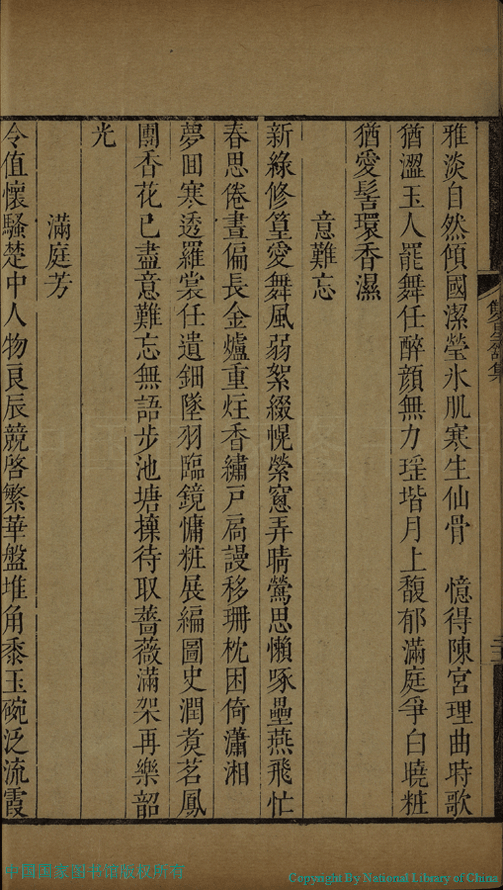 雅淡自然傾國潔瑩氷肌寒生仙骨　憶得陳宮理曲時歌
猶澀玉人罷舞任醉顔無力瑶堦月上馥郁滿庭爭白曉粧
猶愛髻環香濕
意難忘
新綠修篁愛舞風弱絮綴幌縈窻弄晴鶯思懶啄壘燕飛忙
春思倦晝偏長金爐重炷香繡戸扃謾移珊枕困倚瀟湘
夢囬寒透羅裳任遺鈿墜羽臨鏡慵粧展編圖史潤煑茗鳳
團香花已盡意難忘無語步池塘攓待取薔薇滿架再樂韶
光
滿庭芳
令值懷騷楚中人物良辰競啓繁華盤堆角黍玉碗泛流霞
中国国家图书馆版权所有
Copyright By National Library of China